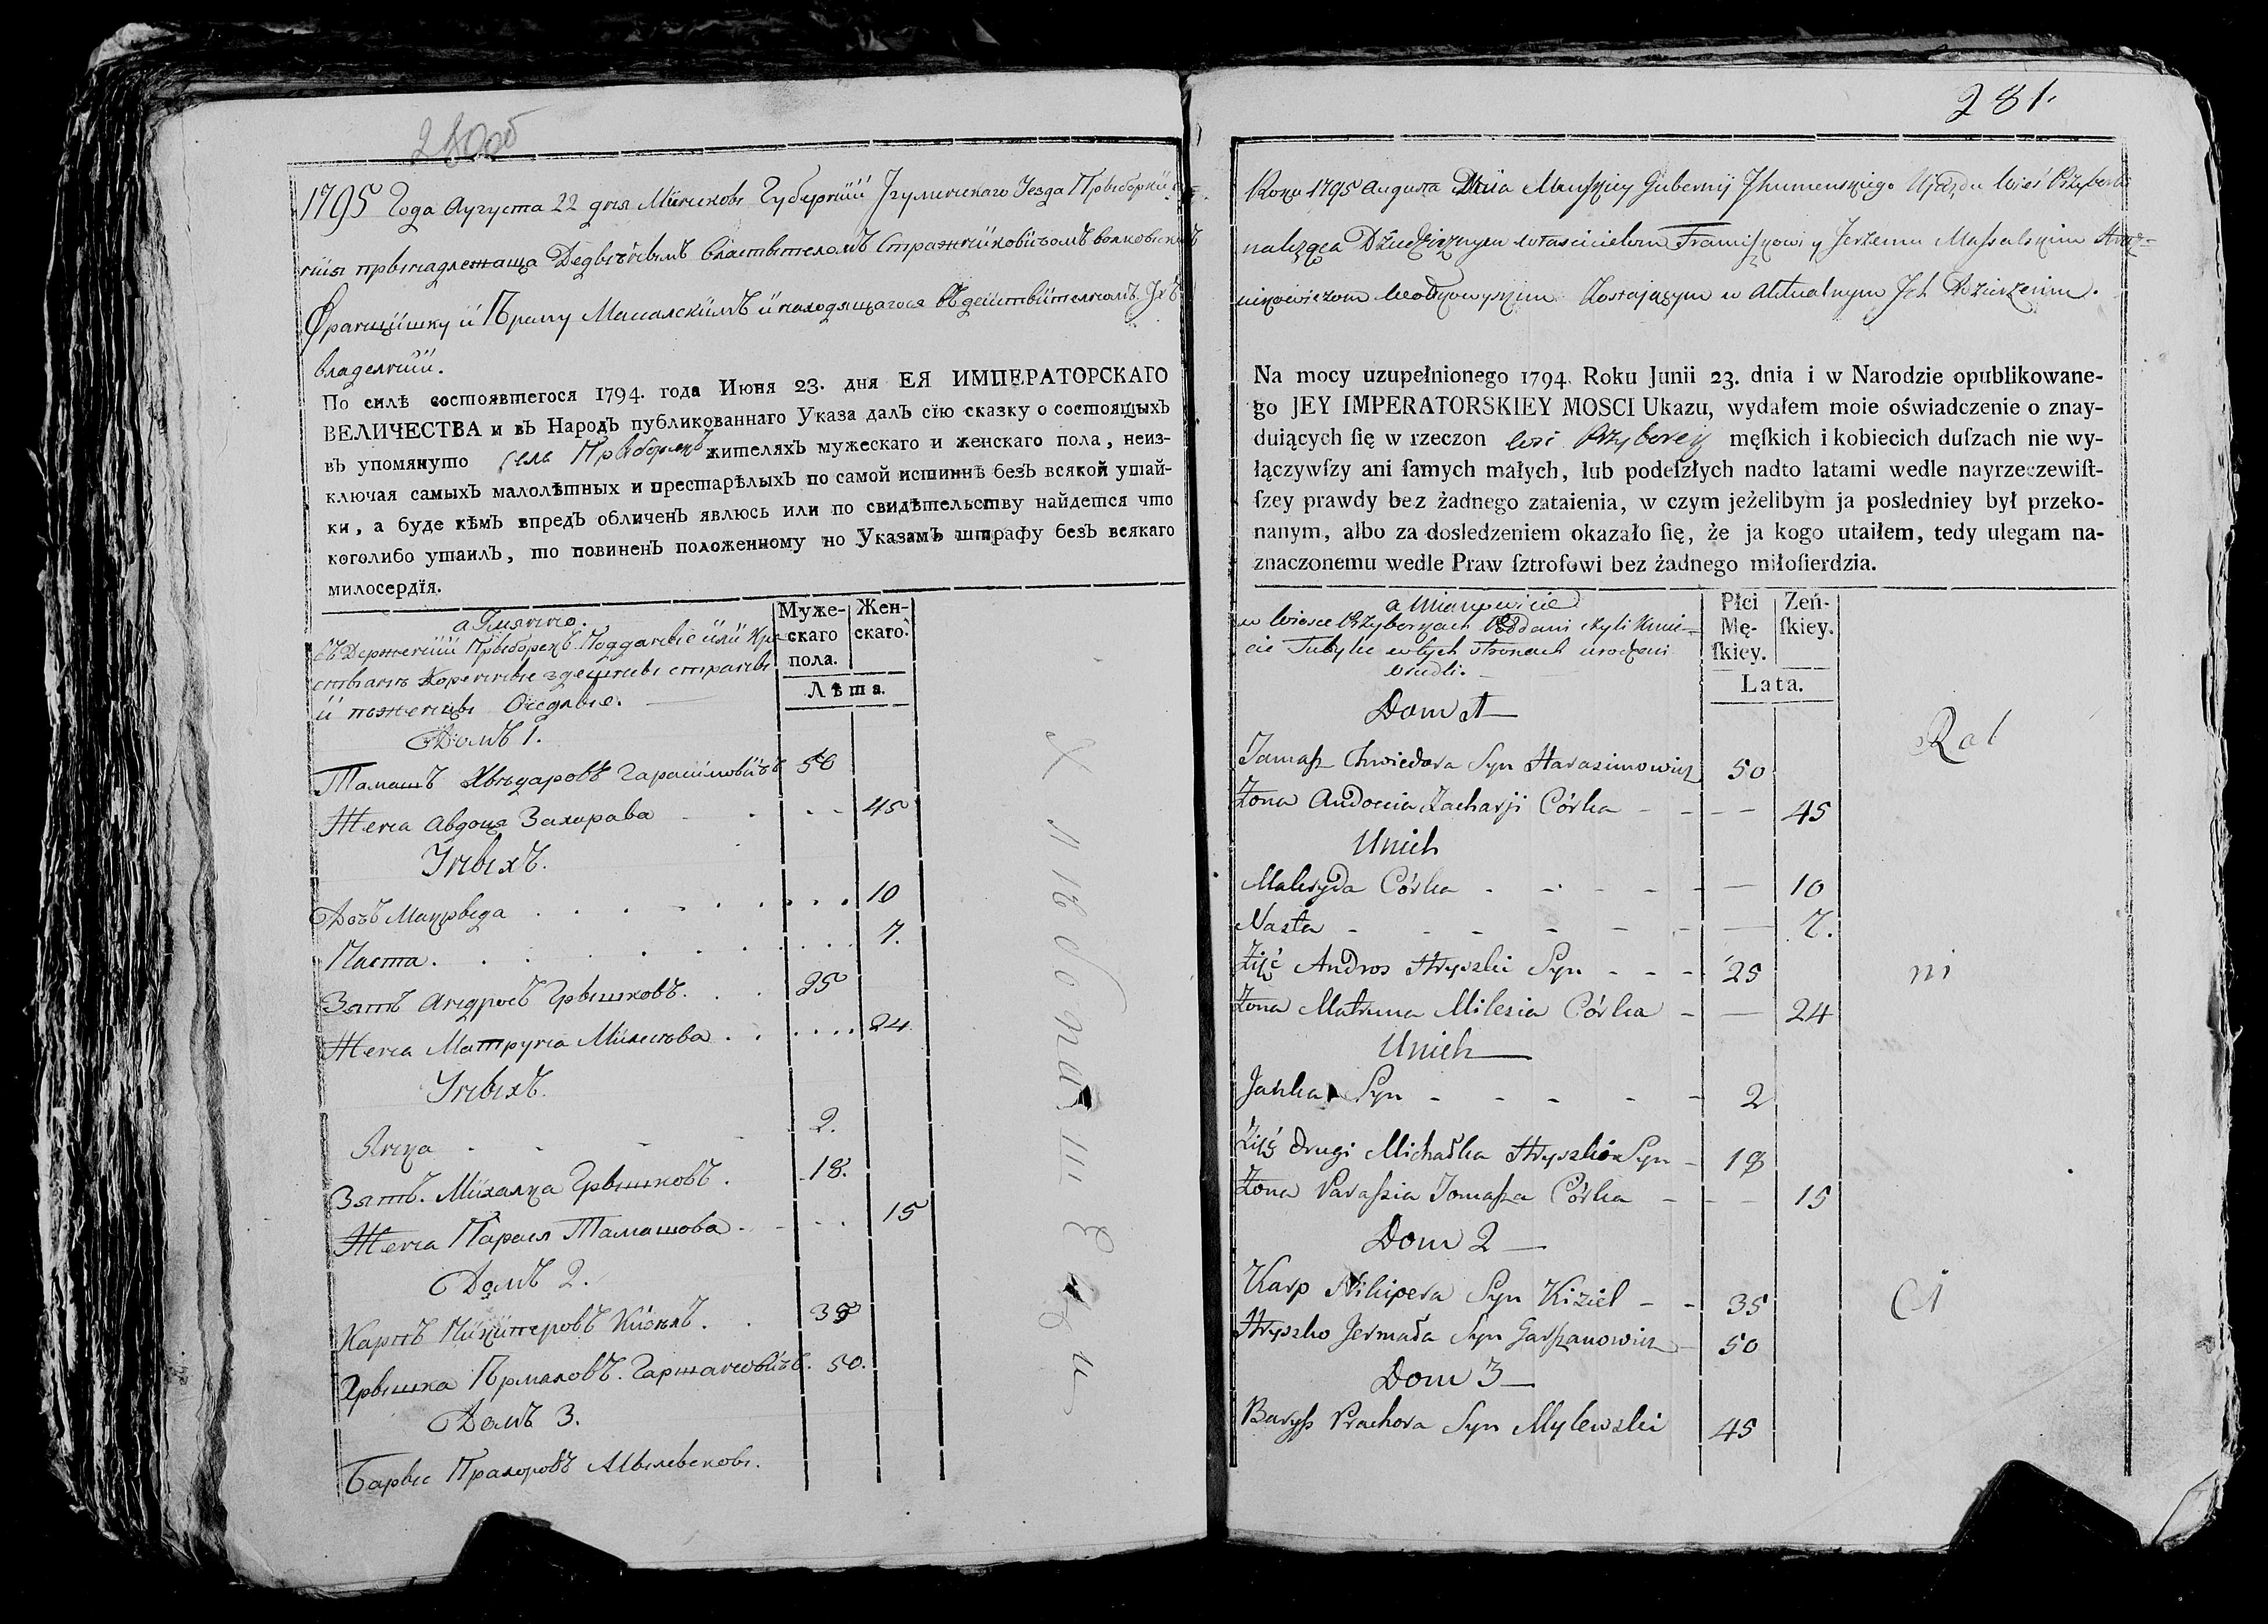 280об
1795 Года Августа 22 дня Минсковı Губернїи Їгуменскаго Уезда Прыборки
прынадлежаща Дедычнымъ властытеломъ Стражниковичомъ волковыскимъ
Францишку и Ѣрему Масалскимъ и находящагося въ действителномъ Їхъ
владелнии.
По силѣ состоявшегося 1794. года Июня 23. дня ЕЯ ИМПЕРАТОРСКАГО
ВЕЛИЧЕСТВА и въ Народъ публикованнаго Указа далъ сїю сказку о состоящыхъ
въ упомянуто селе Прыборкъ жителяхъ мужескаго и женскаго пола, неиз-
ключая самыхъ малолѣтныхъ и престарѣлыхъ по самой истиннѣ безъ всякой утай-
ки, а буде кѣмъ впредъ обличенъ явлюсь или по свидѣтельству найдется что
коголибо утаилъ, то повиненъ положенному по Указамъ штрафу безъ всякаго
милосердїя.
а Їмянно.
Въ Прыборкъ Подданные или Кре
стьянъ Коренные здешнеы страны
и Оседлые.
Муже-
скаго
пола.
Жен-
скаго.
Лѣта.
Домъ 1.
Тамашъ Хведаровъ Гарасимовичъ 50
Жена Авдоця Захарава 45
Уныхъ.
Дочъ Макрыда 10
Наста. 7.
Зять Андросъ Грышковъ. 25
Жена Матруна Милентова 24
Уныхъ.
Янка 2.
Зять. Михалка Грышковъ. 18.
Жена Парася Тамашова. 15
Домъ 2.
Карпъ Никиперовъ Кизель. 35
Грышка Ѣрмаловъ. Гаршановичъ. 50.
Домъ 3.
Барыс Прахоровъ Мылевсковı.
281.
Roku 1795 Augusta Dnia Minskiey Gubernij Jhumenskiego Ujazdu Wieś Przyborki
należąca Dziedzicznym właścicielom Franciszkowi y Jerzemu Massalskim Straż-
nikowiczom Wołkowyskim Zostającym w Aktualnym Jch Dzierżeniu.
Na mocy uzupełnionego 1794. Roku Junii 23. dnia i w Narodzie opublikowane-
go JEY IMPERATORSKIEY MOSCI Ukazu, wydałem moie oświadczenie o znay-
duiących ſię w rzeczon wsi Przyborky męſkich i kobiecich duſzach nie wy-
łączywſzy ani ſamych małych, lub podeſzłych nadto latami wedle nayrzeczewiſt-
ſzey prawdy bez żadnego zataienia, w czym jeżelibym ja posledniey był przeko-
nanym, albo za dosledzeniem okazało ſię, że ja kogo utaiłem, tedy ulegam na-
znaczonemu wedle Praw ſztrofowi bez żadnego miłoſierdzia.
a Mianowicie
w Wiosce Przyborkach Poddani czyli Kmie-
cie Tubylce w tych stronach urodzeni
osiedli.
Płci
Mę-
ſkiey.
Zeń-
ſkiey.
Lata.
Dom 1
Tamasz Chwiedora Syn Harasimowicz 50
Żona Audocia Zacharji Córka 45
Unich
Makryda Córka 10
Nasta 7.
Zięć Andros Hryszki Syn 25
Żona Matruna Milesia Córka 24
Unich
Janka Syn 2
Zięć drugi Michałka Hryszki Syn 18
Żona Parassia Tomasza Córka 15
Dom 2
Karp Nikipera Syn Kiziel 35
Hryszko Jermała Syn Garszanowicz 50
Dom 3
Barysz Prachora Syn Mylewski 45